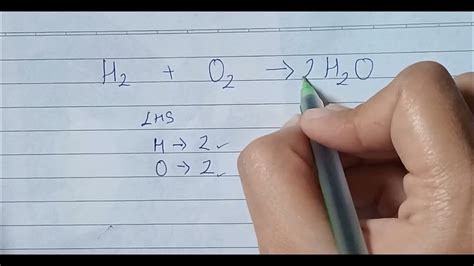 H₂ + O₂ → 2H₂O
LHS
H → 2 ✓
O → 2 ✓